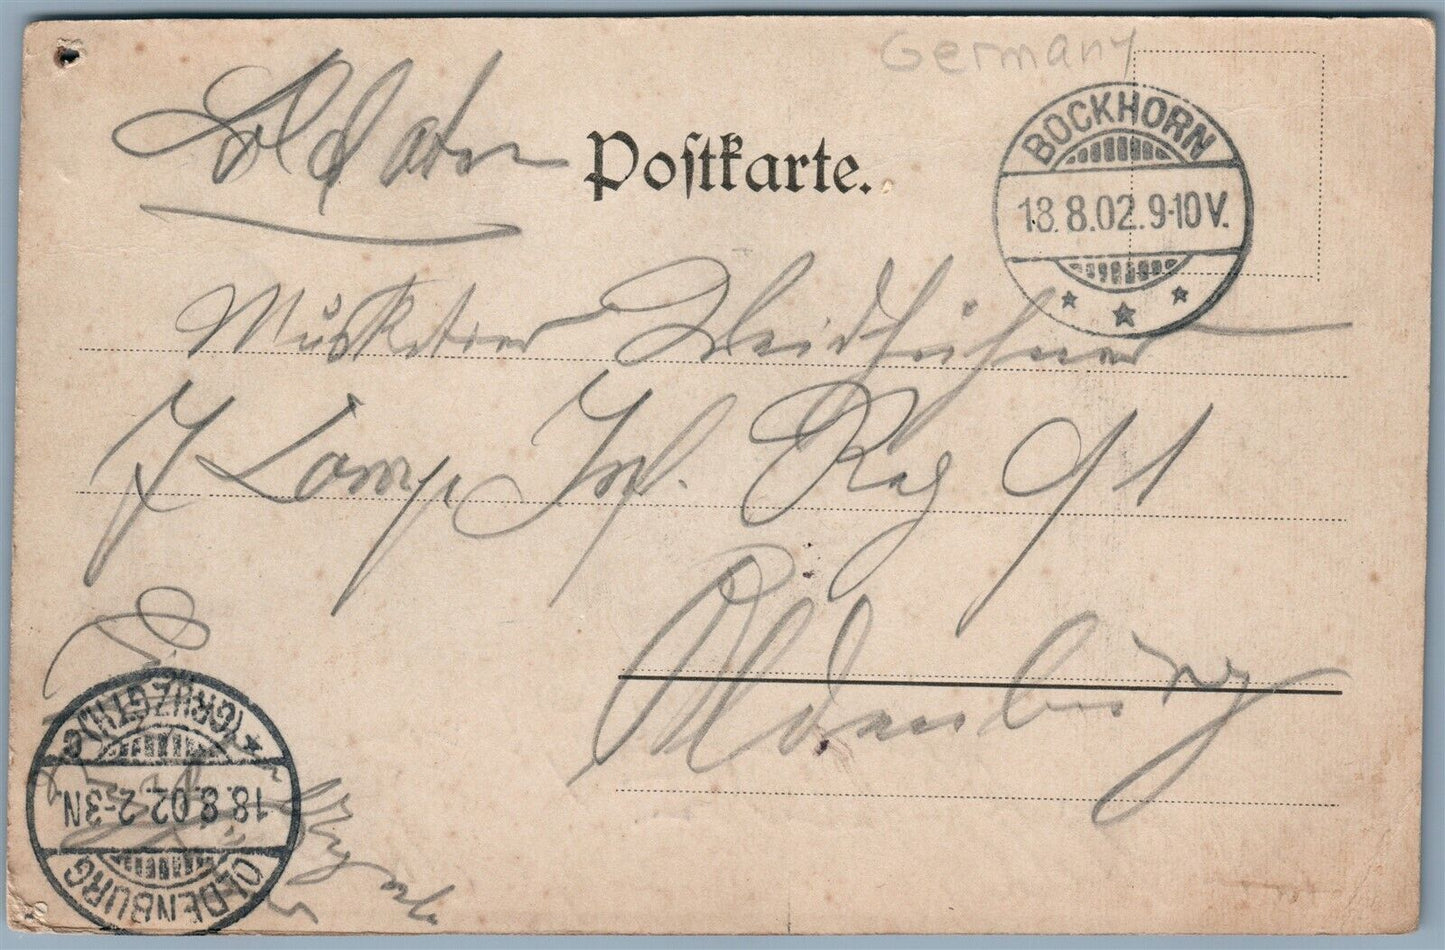 Germany
Soldaten
Postkarte.
BOCKHORN
18.8.02.9-10V.
Musketier
7 Comp. Inf. Reg 91
Oldenburg
OLDENBURG
18.8.02.2-3N
(GRHZGTH.)